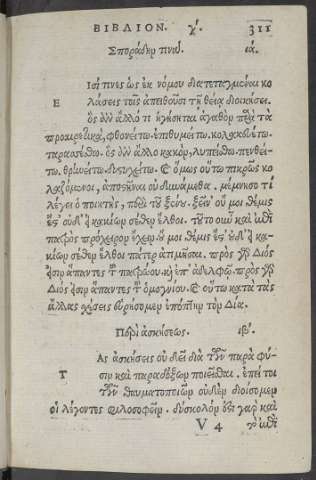 ΒΙΒΛΙΟΝ. γ΄. 311
Σποράδην τινά. ια.
Εἰσί τινες ὡς ἐκ νόμου διατεταγμέναι κο
λάσεις τοῖς ἀπειθοῦσι τῇ θείᾳ διοικήσει.
ὃς ἂν ἄλλό τι ἡγήσηται ἀγαθὸν παρὰ τὰ
προαιρετικὰ, φθονείτω. ἐπιθυμείτω. κολακευέτω.
ταρασσέσθω. ὃς ἂν ἄλλο κακὸν, λυπείσθω. πενθεί-
τω. θρηνείτω. δυστυχείτω. καὶ ὅμως οὕτω πικρῶς κο
λαζόμενοι, ἀποστῆναι οὐ δυνάμεθα. μέμνησο τί
λέγει ὁ ποιητὴς, περὶ τοῦ ξένου. ξεῖν' οὔ μοι θέμις
ἔς' οὐδ' ἢ κακίων σέθεν ἔλθοι. τοῦτο οὖν καὶ ἐπὶ
πατρὸς πρόχειρον ἔχειν. οὔ μοι θέμις ἔς' οὐδ' ἢ κα-
κίων σέθεν ἔλθοι πατέρ' ἀτιμῆσαι. πρὸς γὰρ Διός
εἰσιν ἅπαντες τοῦ πατρώου. καὶ ἐπ' ἀδελφῷ. πρὸς γὰρ
Διός εἰσιν ἅπαντες τοῦ ὁμογνίου. καὶ οὕτω κατὰ τὰς
ἄλλας σχέσεις εὑρήσομεν ἐπόπτην τὸν Δία.
Περὶ ἀσκήσεως. ιβ΄.
Τὰς ἀσκήσεις οὐ δεῖ διὰ τῶν παρὰ φύ-
σιν καὶ παραδόξων ποιεῖσθαι. ἐπεί τοι
τῶν θαυματοποιῶν οὐδὲν διοίσομεν
οἱ λέγοντες φιλοσοφεῖν. δύσκολον ἐστὶ γὰρ καὶ
V 4 τὸ ἐπὶ